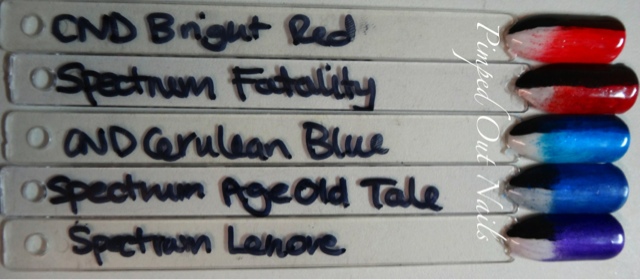 CND Bright Red
Spectrum Fatality
CND Cerulean Blue
Spectrum Age Old Tale
Spectrum Lenore
Pimped Out Nails